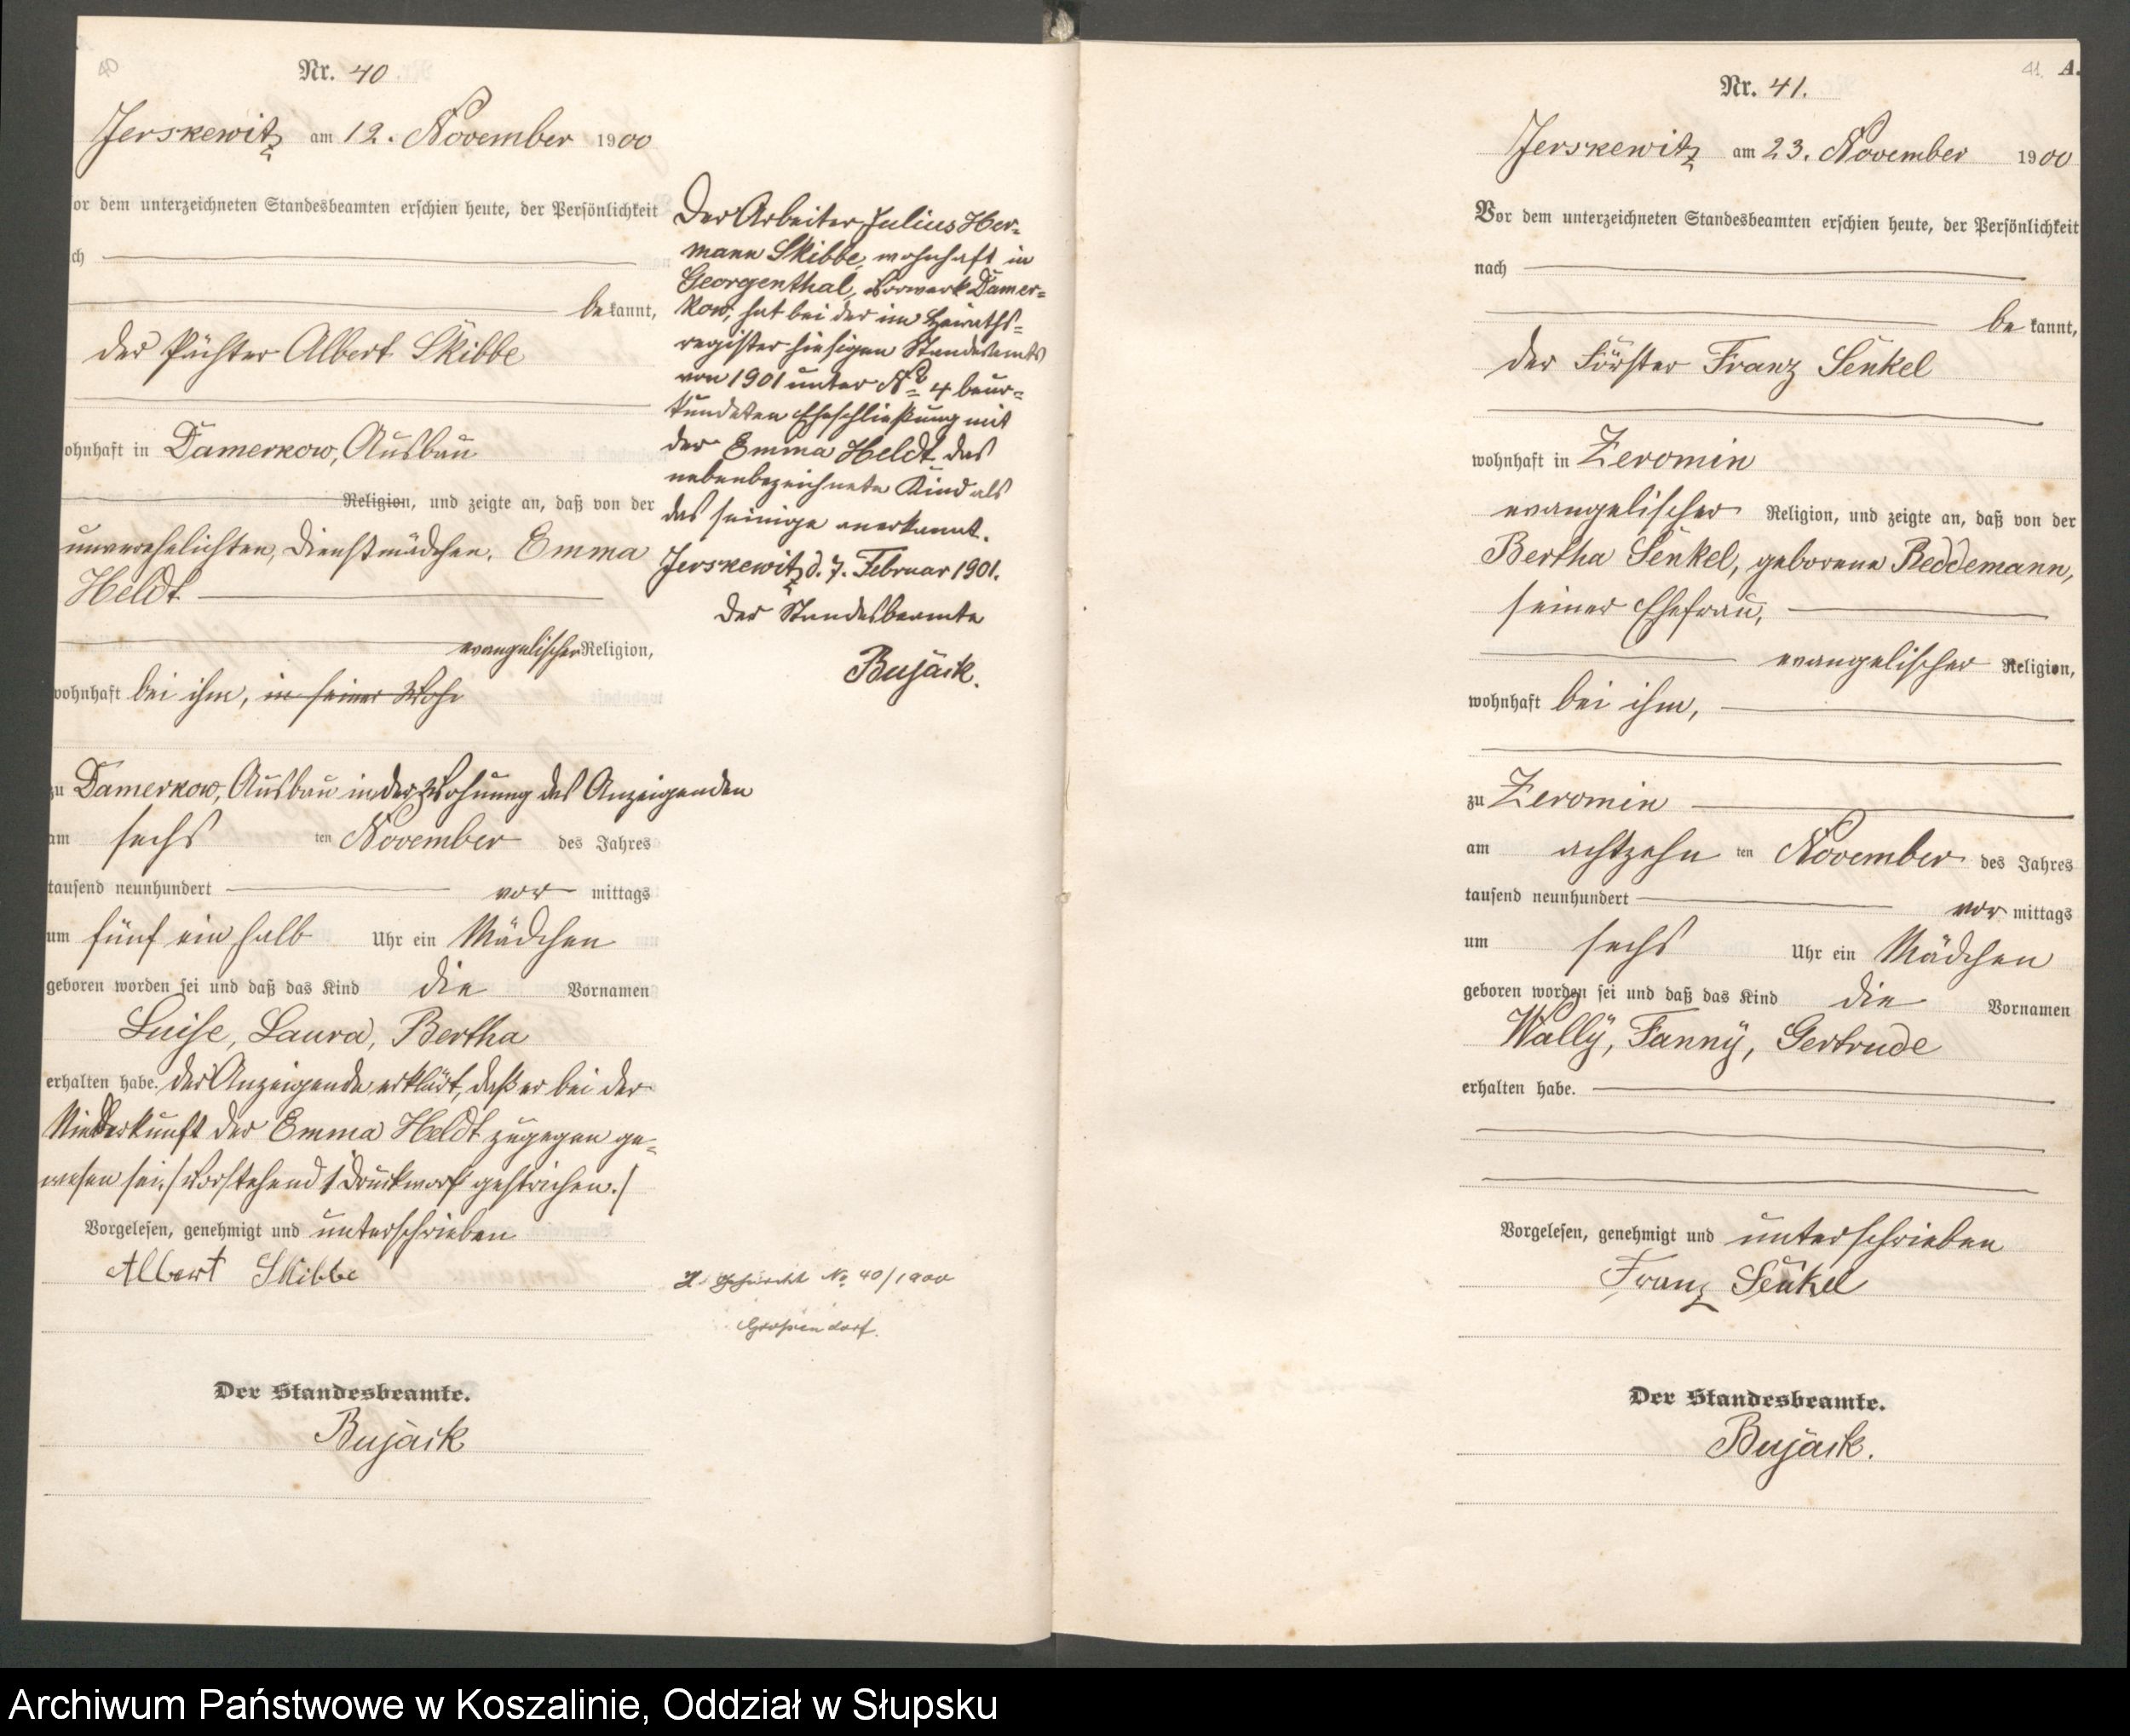 40
Nr. 40
Jerskewitz am 12. November 1900
or dem unterzeichneten Standesbeamten erschien heute, der Persönlichkeit
ch
bekannt,
der Pächter Albert Skibbe
ohnhaft in Damerkow, Ausbau
Religion, und zeigte an, daß von der
unverehelichten, Dienstmädchen, Emma
Heldt
evangelischer Religion,
wohnhaft bei ihm, in seiner Wohn
zu Damerkow, Ausbau in der Wohnung des Anzeigenden
am sechs ten November des Jahres
tausend neunhundert vor mittags
um fünf ein halb Uhr ein Mädchen
geboren worden sei und daß das Kind die Vornamen
Luise, Laura, Bertha
erhalten habe. Der Anzeigende erklärt, daß er bei der
Niederkunft der Emma Heldt zugegen ge=
wesen sei. / Vorstehend 1 Druckwort gestrichen. /
Vorgelesen, genehmigt und unterschrieben
Albert Skibbe
Der Standesbeamte.
Bujack
Der Arbeiter Julius Her=
mann Skibbe, wohnhaft in
Georgenthal, Vorwerk Damer=
kow, hat bei der im Heiraths=
register hiesigen Standesamts
von 1901 unter No 4 beur=
kundeten Eheschließung mit
der Emma Heldt das
nebenbezeichnete Kind als
das seinige anerkannt.
Jerskewitz d. 7. Februar 1901.
Der Standesbeamte
Bujack.
No 40/1900
41. A.
Nr. 41.
Jerskewitz am 23. November 1900
Vor dem unterzeichneten Standesbeamten erschien heute, der Persönlichkeit
nach
bekannt,
der Förster Franz Senkel
wohnhaft in Zeromin
evangelischer Religion, und zeigte an, daß von der
Bertha Senkel, geborene Reddemann,
seiner Ehefrau,
evangelischer Religion,
wohnhaft bei ihm,
zu Zeromin
am achtzehn ten November des Jahres
tausend neunhundert vor mittags
um sechs Uhr ein Mädchen
geboren worden sei und daß das Kind die Vornamen
Wally, Fanny, Gertrude
erhalten habe.
Vorgelesen, genehmigt und unterschrieben
Franz Senkel
Der Standesbeamte.
Bujack.
Archiwum Państwowe w Koszalinie, Oddział w Słupsku